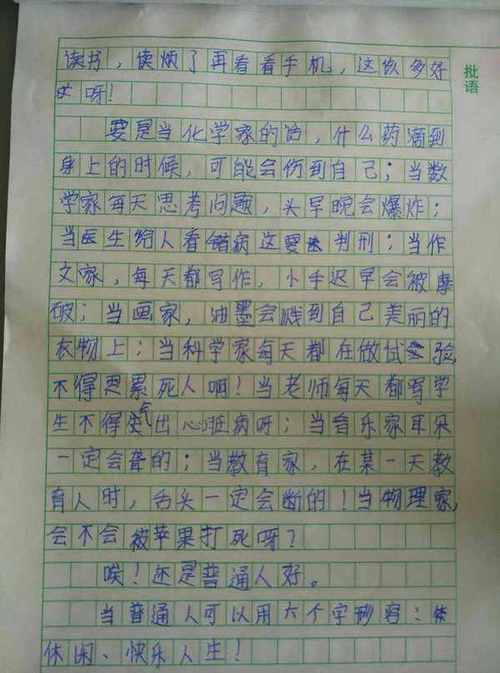 读书，读烦了再看看手机，这么多好
呀！
批语
要是当化学家的话，什么药滴到
身上的时候，可能会伤到自己；当数
学家每天思考问题，头早晚会爆炸；
当医生给人看错病这要判刑；当作
文家，每天都写作，小手迟早会被磨
破；当画家，油墨会溅到自己美丽的
衣物上；当科学家每天都在做试验，
不得累死人啊！当老师每天都写字
生不得气出心脏病呀；当音乐家耳朵
一定会聋的；当教育家，在某一天教
育人时，舌头一定会断的！当物理家，
会不会被苹果打死呀？
唉！还是普通人好。
当普通人可以用六个字形容：
休闲、快乐人生！